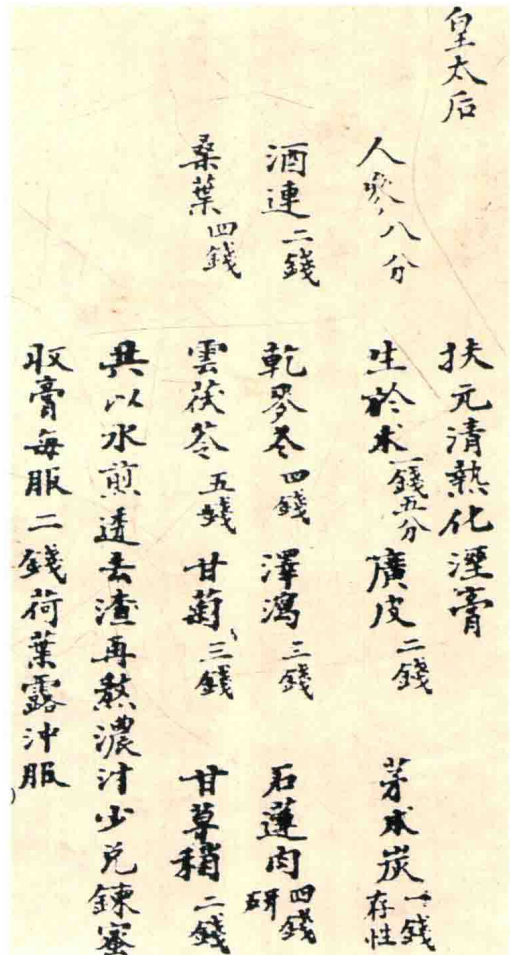 皇太后 扶元清熱化溼膏
人參八分 生於朮一錢五分 廣皮二錢 茅朮炭一錢存性
酒連二錢 乾麥冬四錢 澤瀉三錢 石蓮肉四錢研
桑葉四錢 雲茯苓五錢 甘菊三錢 甘草稍二錢
共以水煎透去渣再熬濃汁少兌鍊蜜
收膏每服二錢荷葉露沖服